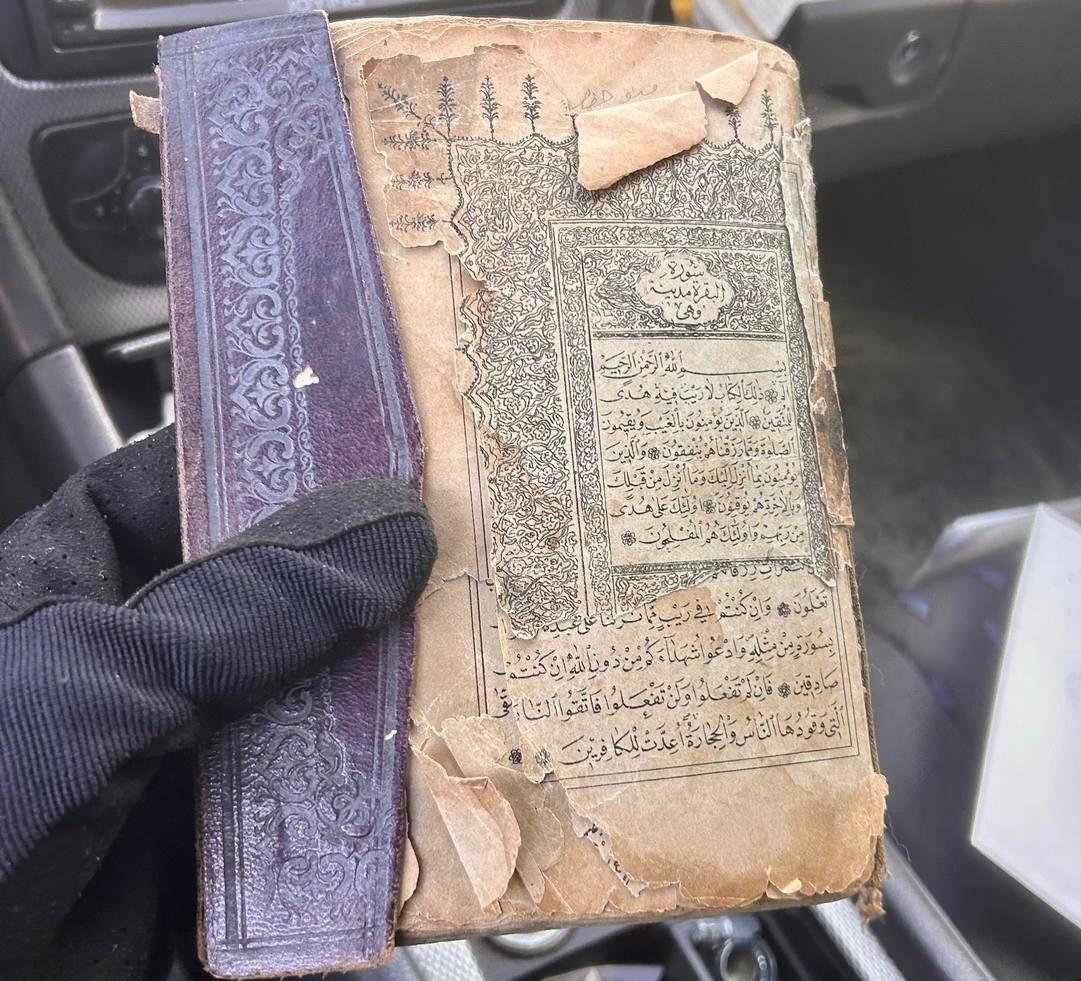 سورة
البقرة مدنية
وهى
بسم الله الرحمن الرحيم
الم ذلك الكتاب لا ريب فيه هدى
للمتقين الذين يؤمنون بالغيب ويقيمون
الصلوة ومما رزقناهم ينفقون والذين
يؤمنون بما أنزل إليك وما أنزل من قبلك
وبالآخرة هم يوقنون أولئك على هدى
من ربهم وأولئك هم المفلحون
تعلمون وَإِنْ كُنْتُمْ فِي رَيْبٍ مِمَّا نزلنا على عبدنا
بِسُورَةٍ مِنْ مِثْلِهِ وَادْعُوا شُهَدَاءَكُمْ مِنْ دُونِ اللهِ اِنْ كُنْتُمْ
صَادِقِينَ فَاِنْ لَمْ تَفْعَلُوا وَلَنْ تَفْعَلُوا فَاتَّقُوا النَّارَ
الَّتِى وَقُودُهَا النَّاسُ وَالْحِجَارَةُ اُعِدَّتْ لِلْكَافِرِينَ